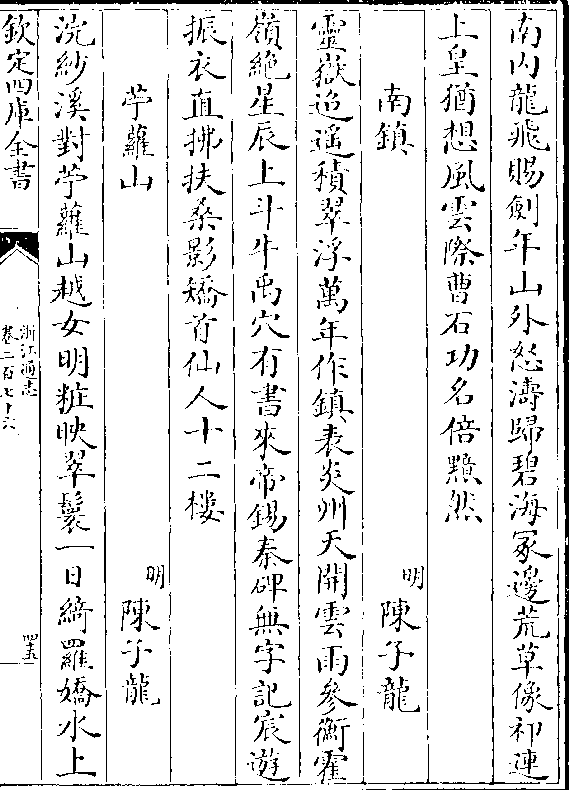 南内龍飛賜劍年山外怒濤歸碧海冢邊荒草像祁連
上皇猶想風雲際曹石功名倍黯然
南鎮
明陳子龍
靈嶽迢遥積翠浮萬年作鎮表炎州天開雲雨參衡霍
嶺絶星辰上斗牛禹穴有書來帝錫秦碑無字記宸遊
振衣直拂扶桑影矯首仙人十二樓
苧蘿山
明陳子龍
浣紗溪對苧蘿山越女明粧映翠鬟一日綺羅嬌水上
欽定四庫全書
浙江通志
卷二百七十六
四五